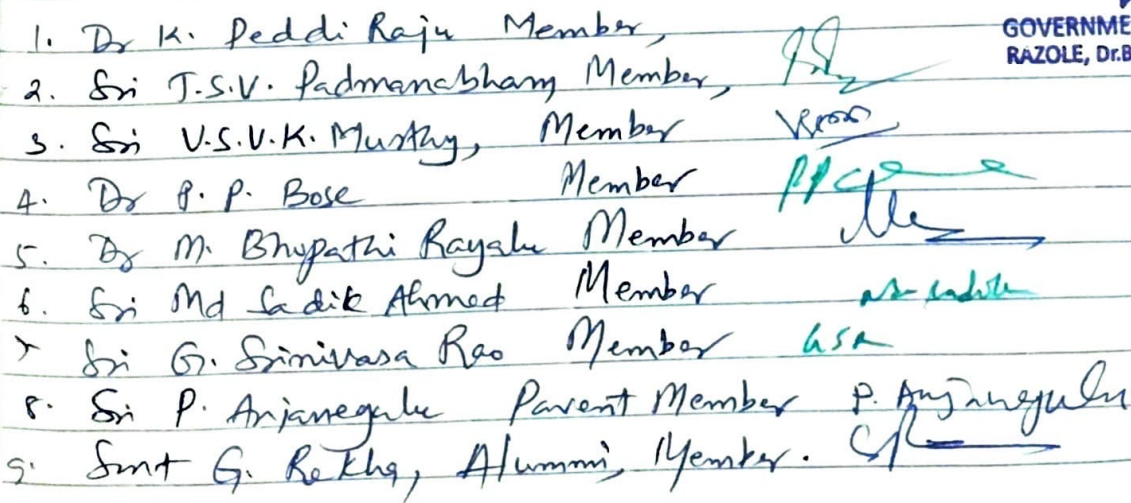 GOVERNME
RAZOLE, Dr.B
1. Dr K. Peddi Raju Member,
2. Sri T.S.V. Padmanabham Member,
3. Sri V.S.V.K. Murthy, Member
4. Dr P. P. Bose Member
5. Dr M. Bhupathi Rayalu Member
6. Sri Md Sadik Ahmed Member
7 Sri G. Srinivasa Rao Member GSR
8. Sri P. Anjaneyulu Parent Member P. Anjaneyulu
9. Smt G. Rekha, Alummi, Member.